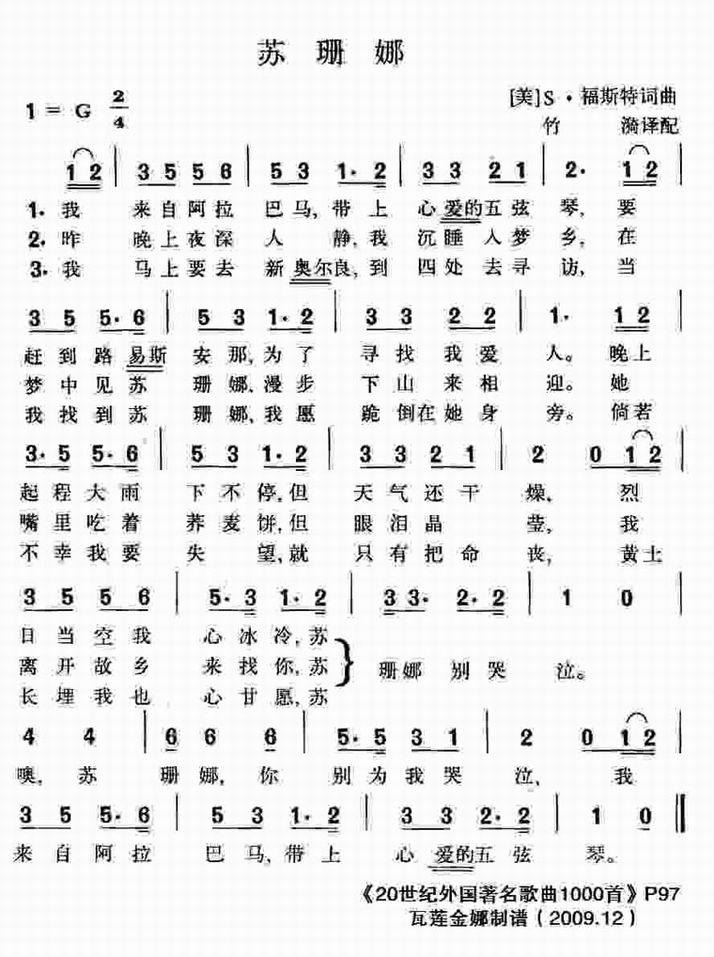 苏珊娜
1 = G 2/4
[美]S·福斯特词曲
竹 漪译配
1 2 | 3 5 5 6 | 5 3 1· 2 | 3 3 2 1 | 2· 1 2 |
1. 我 来自阿拉 巴马,带上 心爱的五弦 琴,要
2. 昨 晚上夜深 人 静,我 沉睡入梦 乡,在
3. 我 马上要去 新奥尔良,到 四处去寻 访,当
3 5 5· 6 | 5 3 1· 2 | 3 3 2 2 | 1· 1 2 |
赶到路易斯 安那,为了 寻找我爱 人。晚上
梦中见苏 珊娜,漫步 下山来相 迎。她
我找到苏 珊娜,我愿 跪倒在她身 旁。倘若
3· 5 5· 6 | 5 3 1· 2 | 3 3 2 1 | 2 0 1 2 |
起程大雨 下不停,但 天气还干 燥,烈
嘴里吃着 荞麦饼,但 眼泪晶 莹,我
不幸我要 失 望,就 只有把命 丧,黄土
3 5 5 6 | 5· 3 1· 2 | 3 3· 2· 2 | 1 0 |
日当空我 心冰冷,苏
离开故乡 来找你,苏 } 珊娜别哭 泣。
长埋我也 心甘愿,苏
4 4 | 6 6 6 | 5· 5 3 1 | 2 0 1 2 |
噢,苏 珊娜,你 别为我哭 泣,我
3 5 5· 6 | 5 3 1· 2 | 3 3 2· 2 | 1 0 ‖
来自阿拉 巴马,带上 心爱的五弦 琴。
《20世纪外国著名歌曲1000首》P97
瓦莲金娜制谱(2009.12)